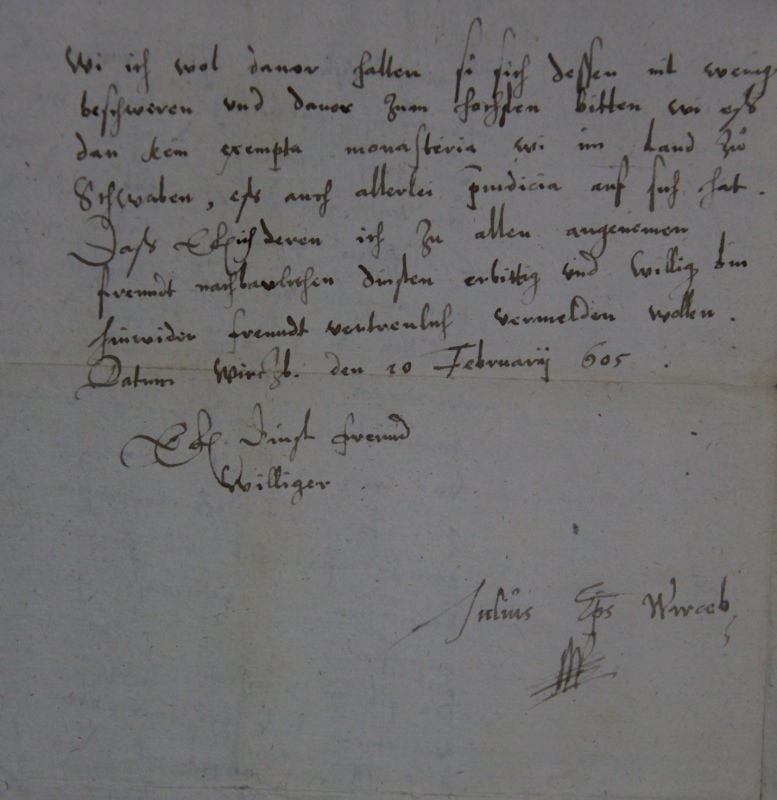 wi ich wol davor halten si sich dessen nit wenig
beschweren und davor zum hochsten bitten wi ess
dan kein exempta monasteria wi im Land zů
Schwaben, ess auch allerlei p̄iudicia auf sich hat.
Dass deren ich zu allen angenemen
freundt nachbaulichen dinsten erbittig und willig bin
hinwider freundt vertreulich vermelden wollen.
Datum Wirtzb. den 20 Februarij 605.
dinst freund
williger
Julius Eps Wirceb